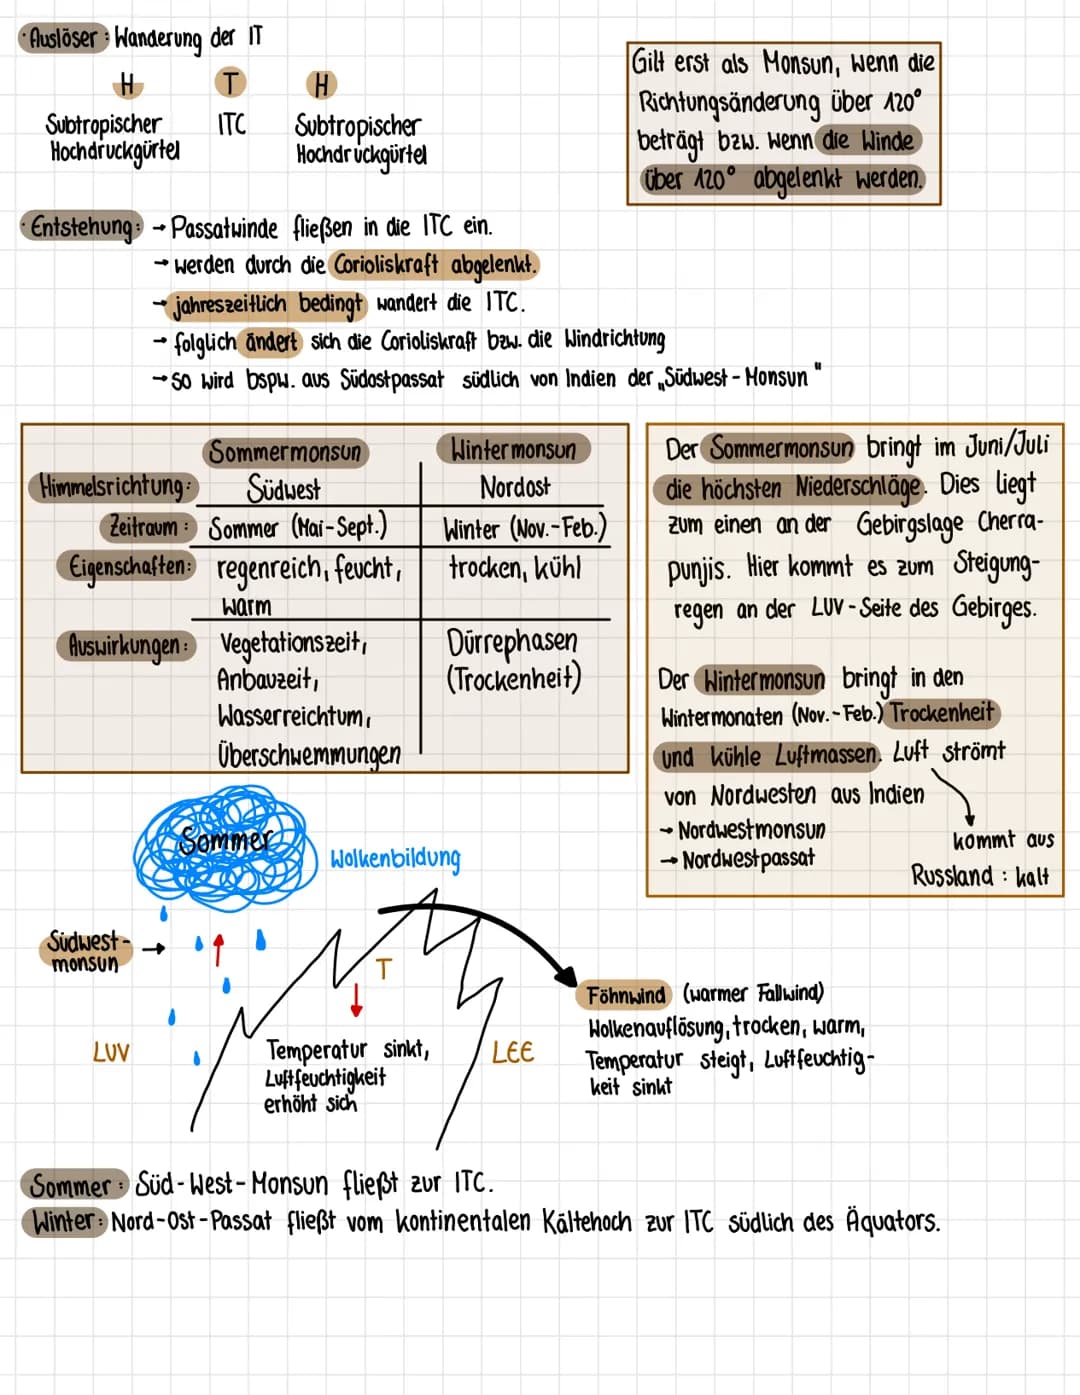 · Auslöser: Wanderung der IT
H T H
Subtropischer Hochdruckgürtel
ITC
Subtropischer Hochdruckgürtel
Gilt erst als Monsun, wenn die
Richtungsänderung über 120°
beträgt bzw. wenn die Winde
über 120° abgelenkt werden.
· Entstehung: → Passatwinde fließen in die ITC ein.
→ werden durch die Corioliskraft abgelenkt.
→ jahreszeitlich bedingt wandert die ITC.
→ folglich ändert sich die Corioliskraft bzw. die Windrichtung
→ so wird bspw. aus Südostpassat südlich von Indien der „Südwest-Monsun"
Sommermonsun Wintermonsun
Himmelsrichtung: Südwest Nordost
Zeitraum: Sommer (Mai-Sept.) Winter (Nov.-Feb.)
Eigenschaften: regenreich, feucht, trocken, kühl
warm
Auswirkungen: Vegetationszeit, Dürrephasen
Anbauzeit, (Trockenheit)
Wasserreichtum,
Überschwemmungen
Der Sommermonsun bringt im Juni/Juli
die höchsten Niederschläge. Dies liegt
zum einen an der Gebirgslage Cherra-
punjis. Hier kommt es zum Steigung-
regen an der LUV-Seite des Gebirges.
Der Wintermonsun bringt in den
Wintermonaten (Nov.-Feb.) Trockenheit
und kühle Luftmassen. Luft strömt
von Nordwesten aus Indien
→ Nordwestmonsun
→ Nordwestpassat
kommt aus
Russland: kalt
Sommer
Wolkenbildung
Südwest-
monsun →
T
LUV
Temperatur sinkt,
Luftfeuchtigkeit
erhöht sich
LEE
Föhnwind (warmer Fallwind)
Wolkenauflösung, trocken, warm,
Temperatur steigt, Luftfeuchtig-
keit sinkt
Sommer: Süd-West-Monsun fließt zur ITC.
Winter: Nord-Ost-Passat fließt vom kontinentalen Kältehoch zur ITC südlich des Äquators.